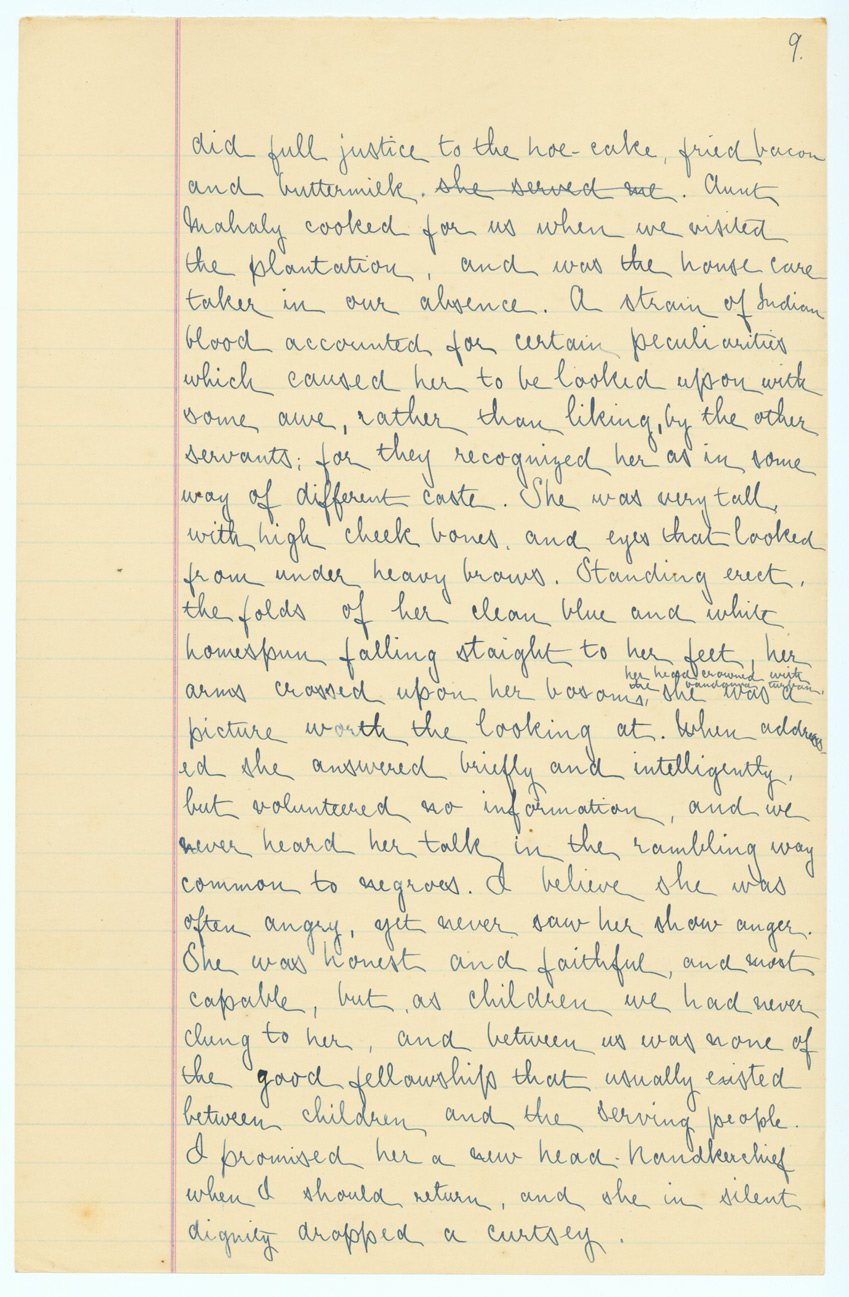 9.
did full justice to the hoe-cake, fried bacon
and buttermilk. she served me. Aunt
Mahaly cooked for us when we visited
the plantation, and was the house care
taker in our absence. A strain of Indian
blood accounted for certain peculiarities
which caused her to be looked upon with
some awe, rather than liking, by the other
servants; for they recognized her as in some
way of different caste. She was very tall,
with high cheek bones, and eyes that looked
from under heavy brows. Standing erect,
the folds of her clean blue and white
homespun falling staight to her feet, her
her head crowned with
the bandanna turban,
arms crossed upon her bosoms, she was a
picture worth the looking at. When address-
ed she answered briefly and intelligently,
but volunteered no information, and we
never heard her talk in the rambling way
common to negroes. I believe she was
often angry, yet never saw her show anger.
She was honest and faithful, and most
capable, but, as children we had never
clung to her, and between us was none of
the good fellowship that usually existed
between children and the serving people.
I promised her a new head-handkerchief
when I should return, and she in silent
dignity dropped a curtsey.